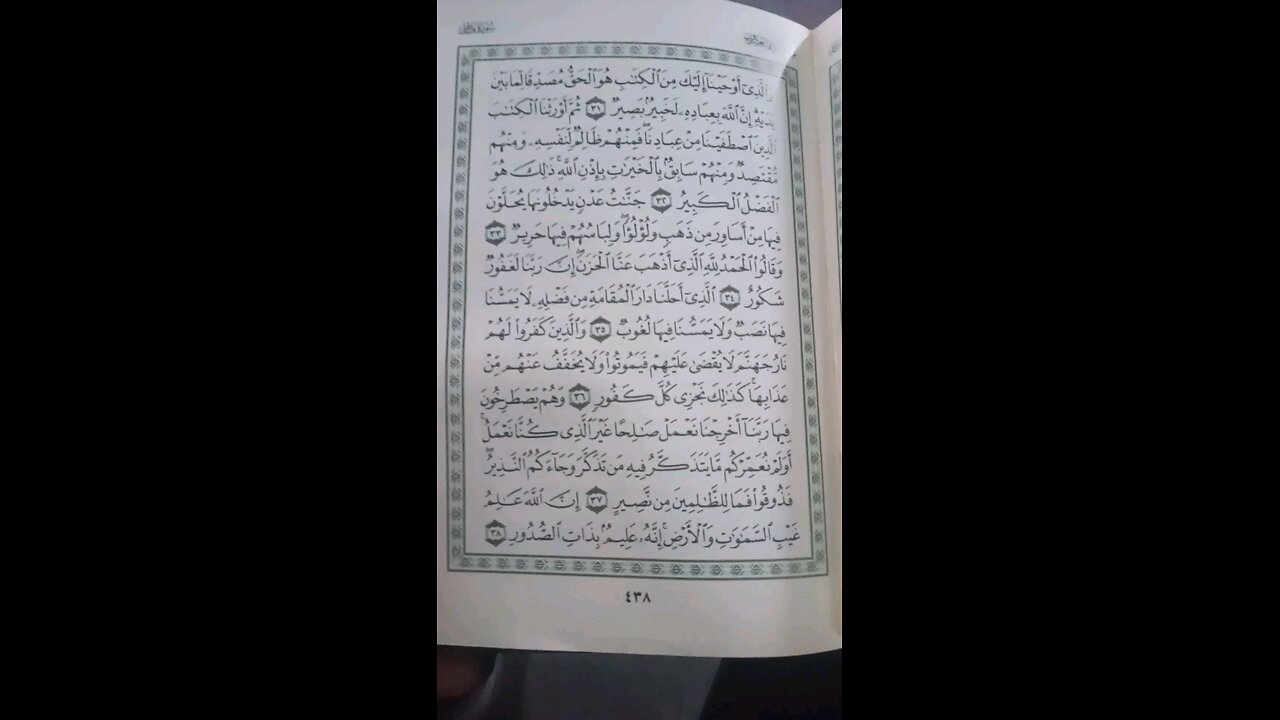 سُورَةُ فَاطِرٍ
وَٱلَّذِىٓ أَوۡحَيۡنَآ إِلَيۡكَ مِنَ ٱلۡكِتَٰبِ هُوَ ٱلۡحَقُّ مُصَدِّقٗا لِّمَا بَيۡنَ
يَدَيۡهِۗ إِنَّ ٱللَّهَ بِعِبَادِهِۦ لَخَبِيرُۢ بَصِيرٞ ٣١ ثُمَّ أَوۡرَثۡنَا ٱلۡكِتَٰبَ
ٱلَّذِينَ ٱصۡطَفَيۡنَا مِنۡ عِبَادِنَاۖ فَمِنۡهُمۡ ظَالِمٞ لِّنَفۡسِهِۦ وَمِنۡهُم
مُّقۡتَصِدٞ وَمِنۡهُمۡ سَابِقُۢ بِٱلۡخَيۡرَٰتِ بِإِذۡنِ ٱللَّهِۚ ذَٰلِكَ هُوَ
ٱلۡفَضۡلُ ٱلۡكَبِيرُ ٣٢ جَنَّٰتُ عَدۡنٖ يَدۡخُلُونَهَا يُحَلَّوۡنَ
فِيهَا مِنۡ أَسَاوِرَ مِن ذَهَبٖ وَلُؤۡلُؤٗاۖ وَلِبَاسُهُمۡ فِيهَا حَرِيرٞ ٣٣
وَقَالُواْ ٱلۡحَمۡدُ لِلَّهِ ٱلَّذِىٓ أَذۡهَبَ عَنَّا ٱلۡحَزَنَۖ إِنَّ رَبَّنَا لَغَفُورٞ
شَكُورٌ ٣٤ ٱلَّذِىٓ أَحَلَّنَا دَارَ ٱلۡمُقَامَةِ مِن فَضۡلِهِۦ لَا يَمَسُّنَا
فِيهَا نَصَبٞ وَلَا يَمَسُّنَا فِيهَا لُغُوبٞ ٣٥ وَٱلَّذِينَ كَفَرُواْ لَهُمۡ
نَارُ جَهَنَّمَ لَا يُقۡضَىٰ عَلَيۡهِمۡ فَيَمُوتُواْ وَلَا يُخَفَّفُ عَنۡهُم مِّنۡ
عَذَابِهَاۚ كَذَٰلِكَ نَجۡزِى كُلَّ كَفُورٖ ٣٦ وَهُمۡ يَصۡطَرِخُونَ
فِيهَا رَبَّنَآ أَخۡرِجۡنَا نَعۡمَلۡ صَٰلِحًا غَيۡرَ ٱلَّذِى كُنَّا نَعۡمَلُۚ
أَوَلَمۡ نُعَمِّرۡكُم مَّا يَتَذَكَّرُ فِيهِ مَن تَذَكَّرَ وَجَآءَكُمُ ٱلنَّذِيرُۖ
فَذُوقُواْ فَمَا لِلظَّٰلِمِينَ مِن نَّصِيرٍ ٣٧ إِنَّ ٱللَّهَ عَٰلِمُ
غَيۡبِ ٱلسَّمَٰوَٰتِ وَٱلۡأَرۡضِۚ إِنَّهُۥ عَلِيمُۢ بِذَاتِ ٱلصُّدُورِ ٣٨
٤٣٨